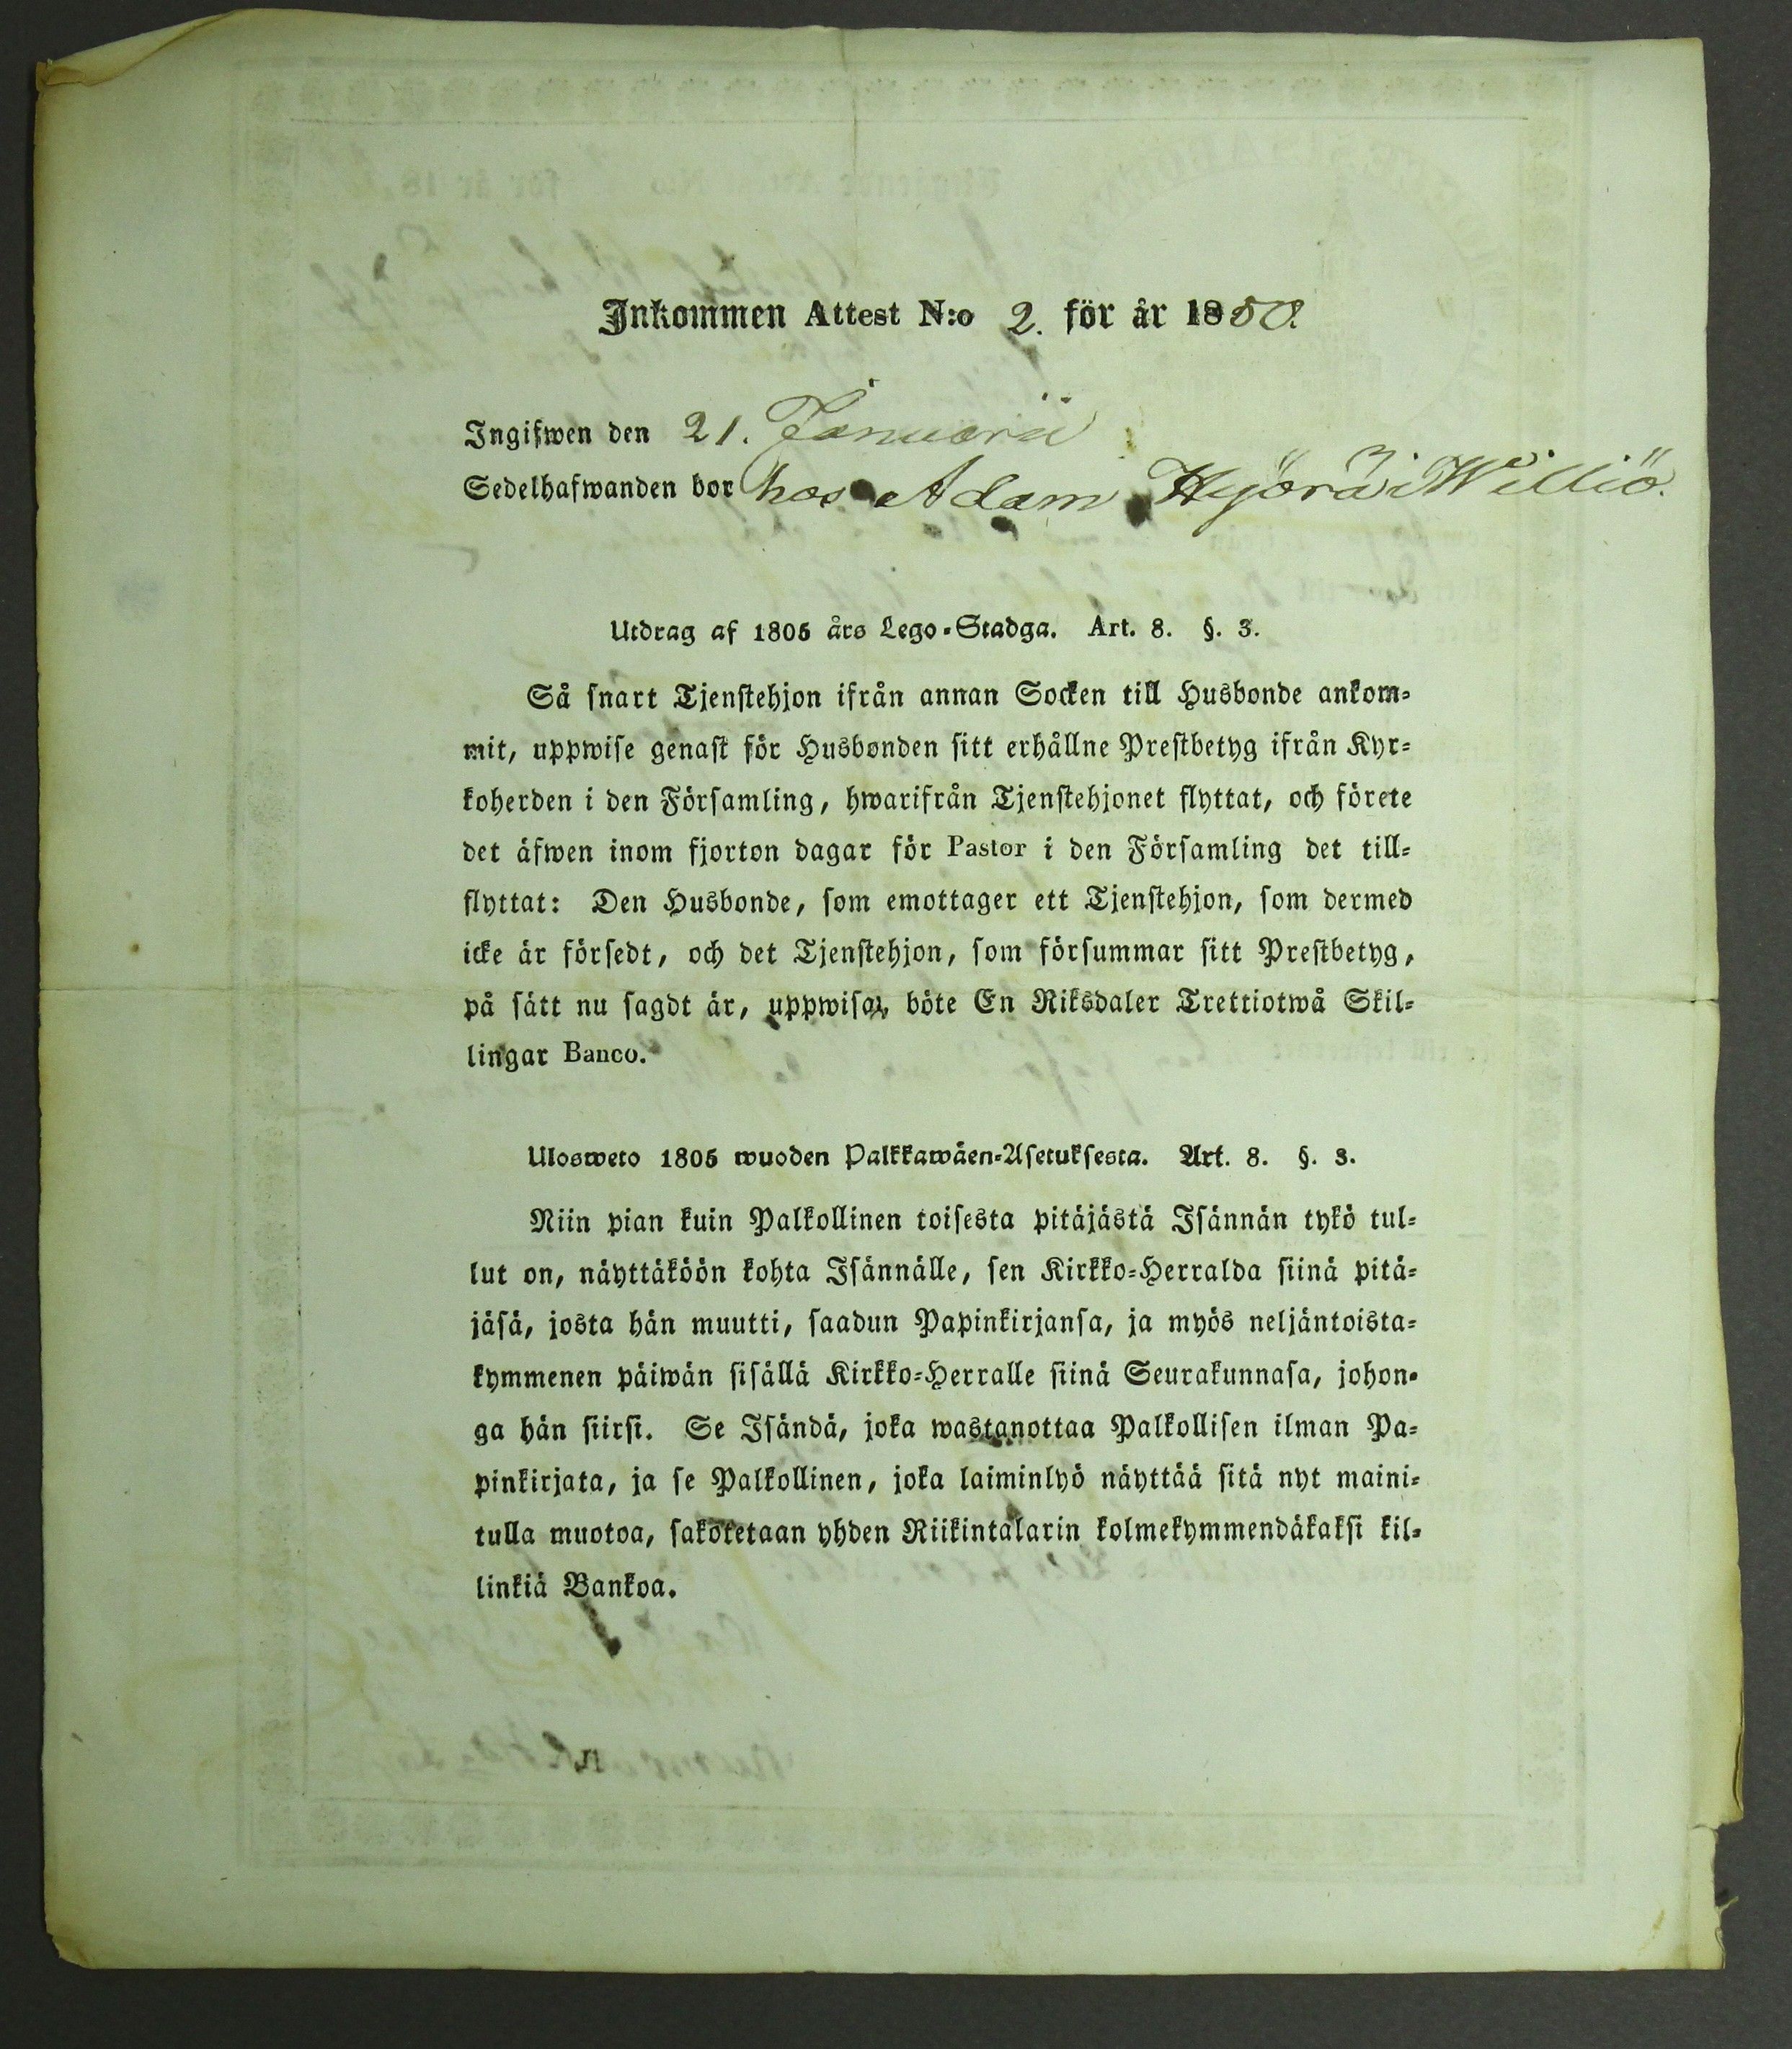 Inkommen Attest N:o 2. för år 1850.
Ingifwen den 21. Januarii
Sedelhafwanden bor hos Adam Hyörä i Williö.
Utdrag af 1805 års Lego-Stadga. Art. 8. §. 3.
Så snart Tjenstehjon ifrån annan Socken till Husbonde ankom-
mit, uppwise genast för Husbonden sitt erhållne Prestbetyg ifrån Kyr-
koherden i den Församling, hwarifrån Tjenstehjonet flyttat, och förete
det äfwen inom fjorton dagar för Pastor i den Församling det till-
flyttat: Den Husbonde, som emottager ett Tjenstehjon, som dermed
icke är försedt, och det Tjenstehjon, som försummar sitt Prestbetyg,
på sätt nu sagdt är, uppwisa, böte En Riksdaler Trettiotwå Skil-
lingar Banco.
Ulosweto 1805 wuoden Palkkawäen-Asetuksesta. Art. 8. §. 3.
Niin pian kuin Palkollinen toisesta pitäjästä Isännän tykö tul-
lut on, näyttäköön kohta Isännälle, sen Kirkko-Herralda siinä pitä-
jäsä, josta hän muutti, saadun Papinkirjansa, ja myös neljäntoista-
kymmenen päiwän sisällä Kirkko-Herralle siinä Seurakunnasa, johon-
ga hän siirsi. Se Isändä, joka wastanottaa Palkollisen ilman Pa-
pinkirjata, ja se Palkollinen, joka laiminlyö näyttää sitä nyt maini-
tulla muotoa, sakotetaan yhden Riikintalarin kolmekymmendäkaksi kil-
linkiä Bankoa.